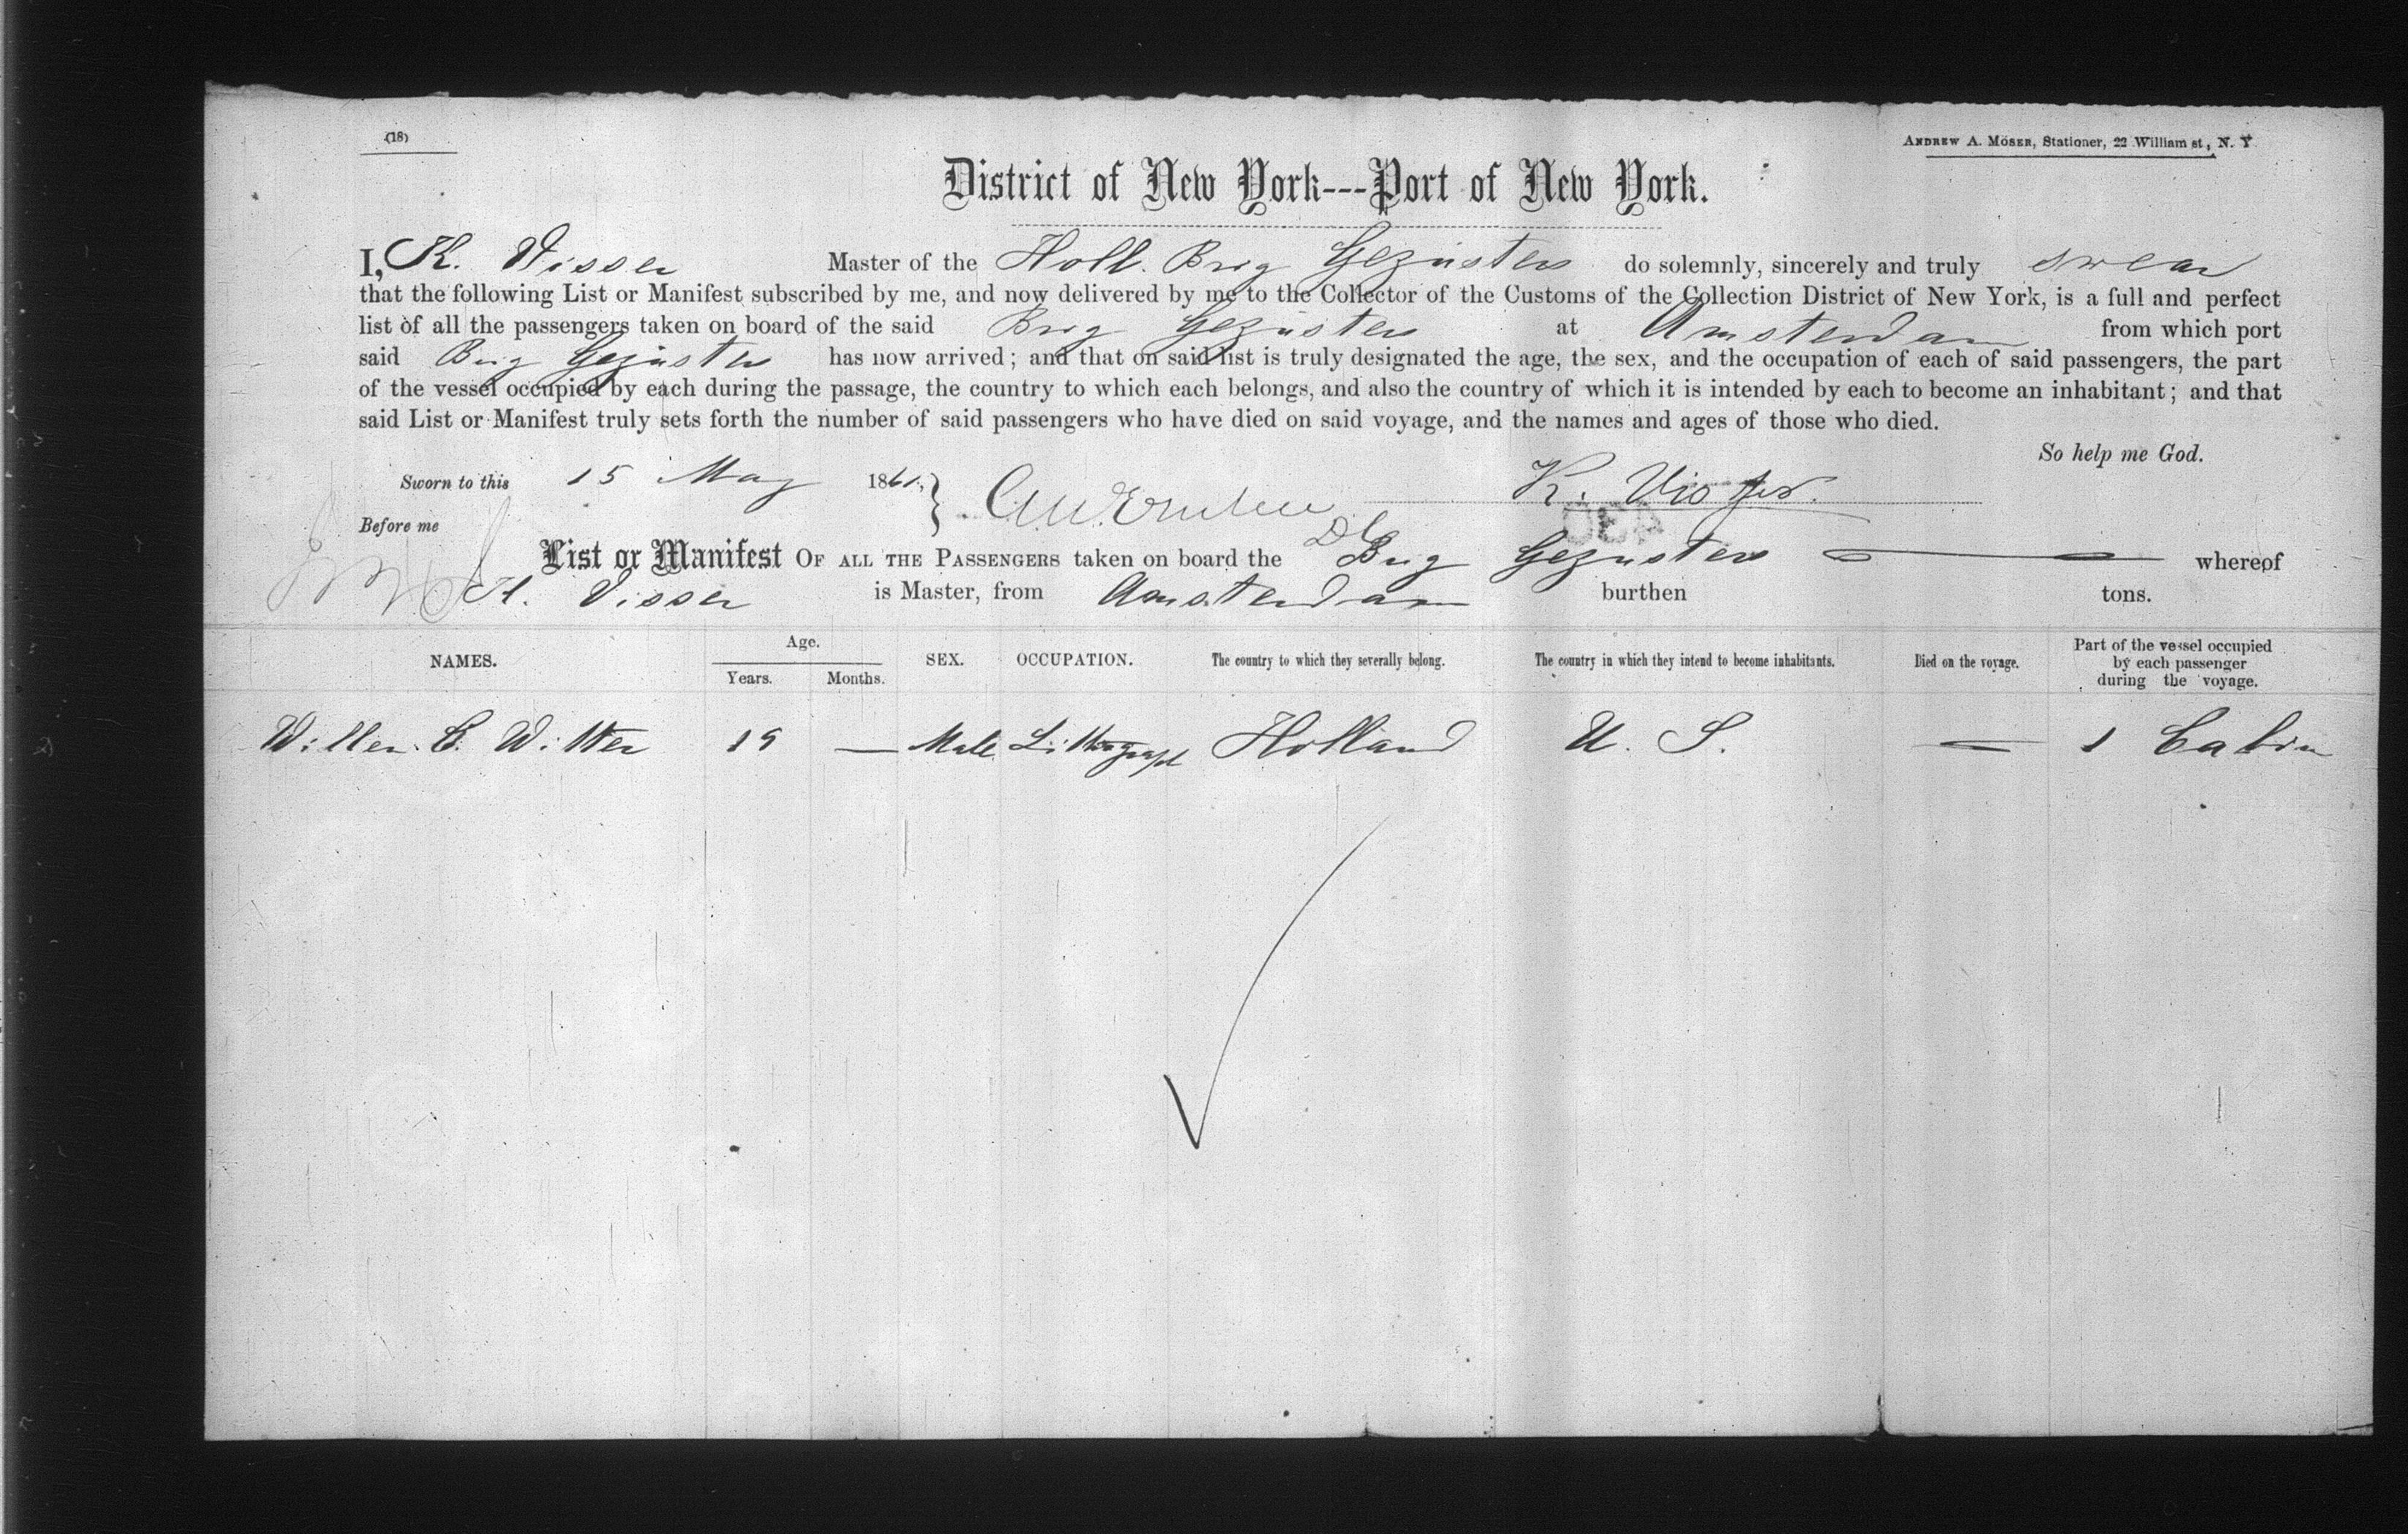 (18)
ANDREW A. MÖSER, Stationer, 22 William st., N. Y
District of New York---Port of New York.
I, K. Visser Master of the Holl. Brig Gezusters do solemnly, sincerely and truly swear
that the following List or Manifest subscribed by me, and now delivered by me to the Collector of the Customs of the Collection District of New York, is a full and perfect
list of all the passengers taken on board of the said Brig Gezusters at Amsterdam from which port
said Brig Gezusters has now arrived; and that on said list is truly designated the age, the sex, and the occupation of each of said passengers, the part
of the vessel occupied by each during the passage, the country to which each belongs, and also the country of which it is intended by each to become an inhabitant; and that
said List or Manifest truly sets forth the number of said passengers who have died on said voyage, and the names and ages of those who died.
So help me God.
Sworn to this 15 May 1861, K. Visser.
Before me
List or Manifest OF ALL THE PASSENGERS taken on board the Brig Gezusters whereof
K. Visser is Master, from Amsterdam burthen tons.
NAMES. Age. Years. Months. SEX. OCCUPATION. The country to which they severally belong. The country in which they intend to become inhabitants. Died on the voyage. Part of the vessel occupied by each passenger during the voyage.
Willem C. Witter 19 — Male Lithograph Holland U. S. — 1 Cabin